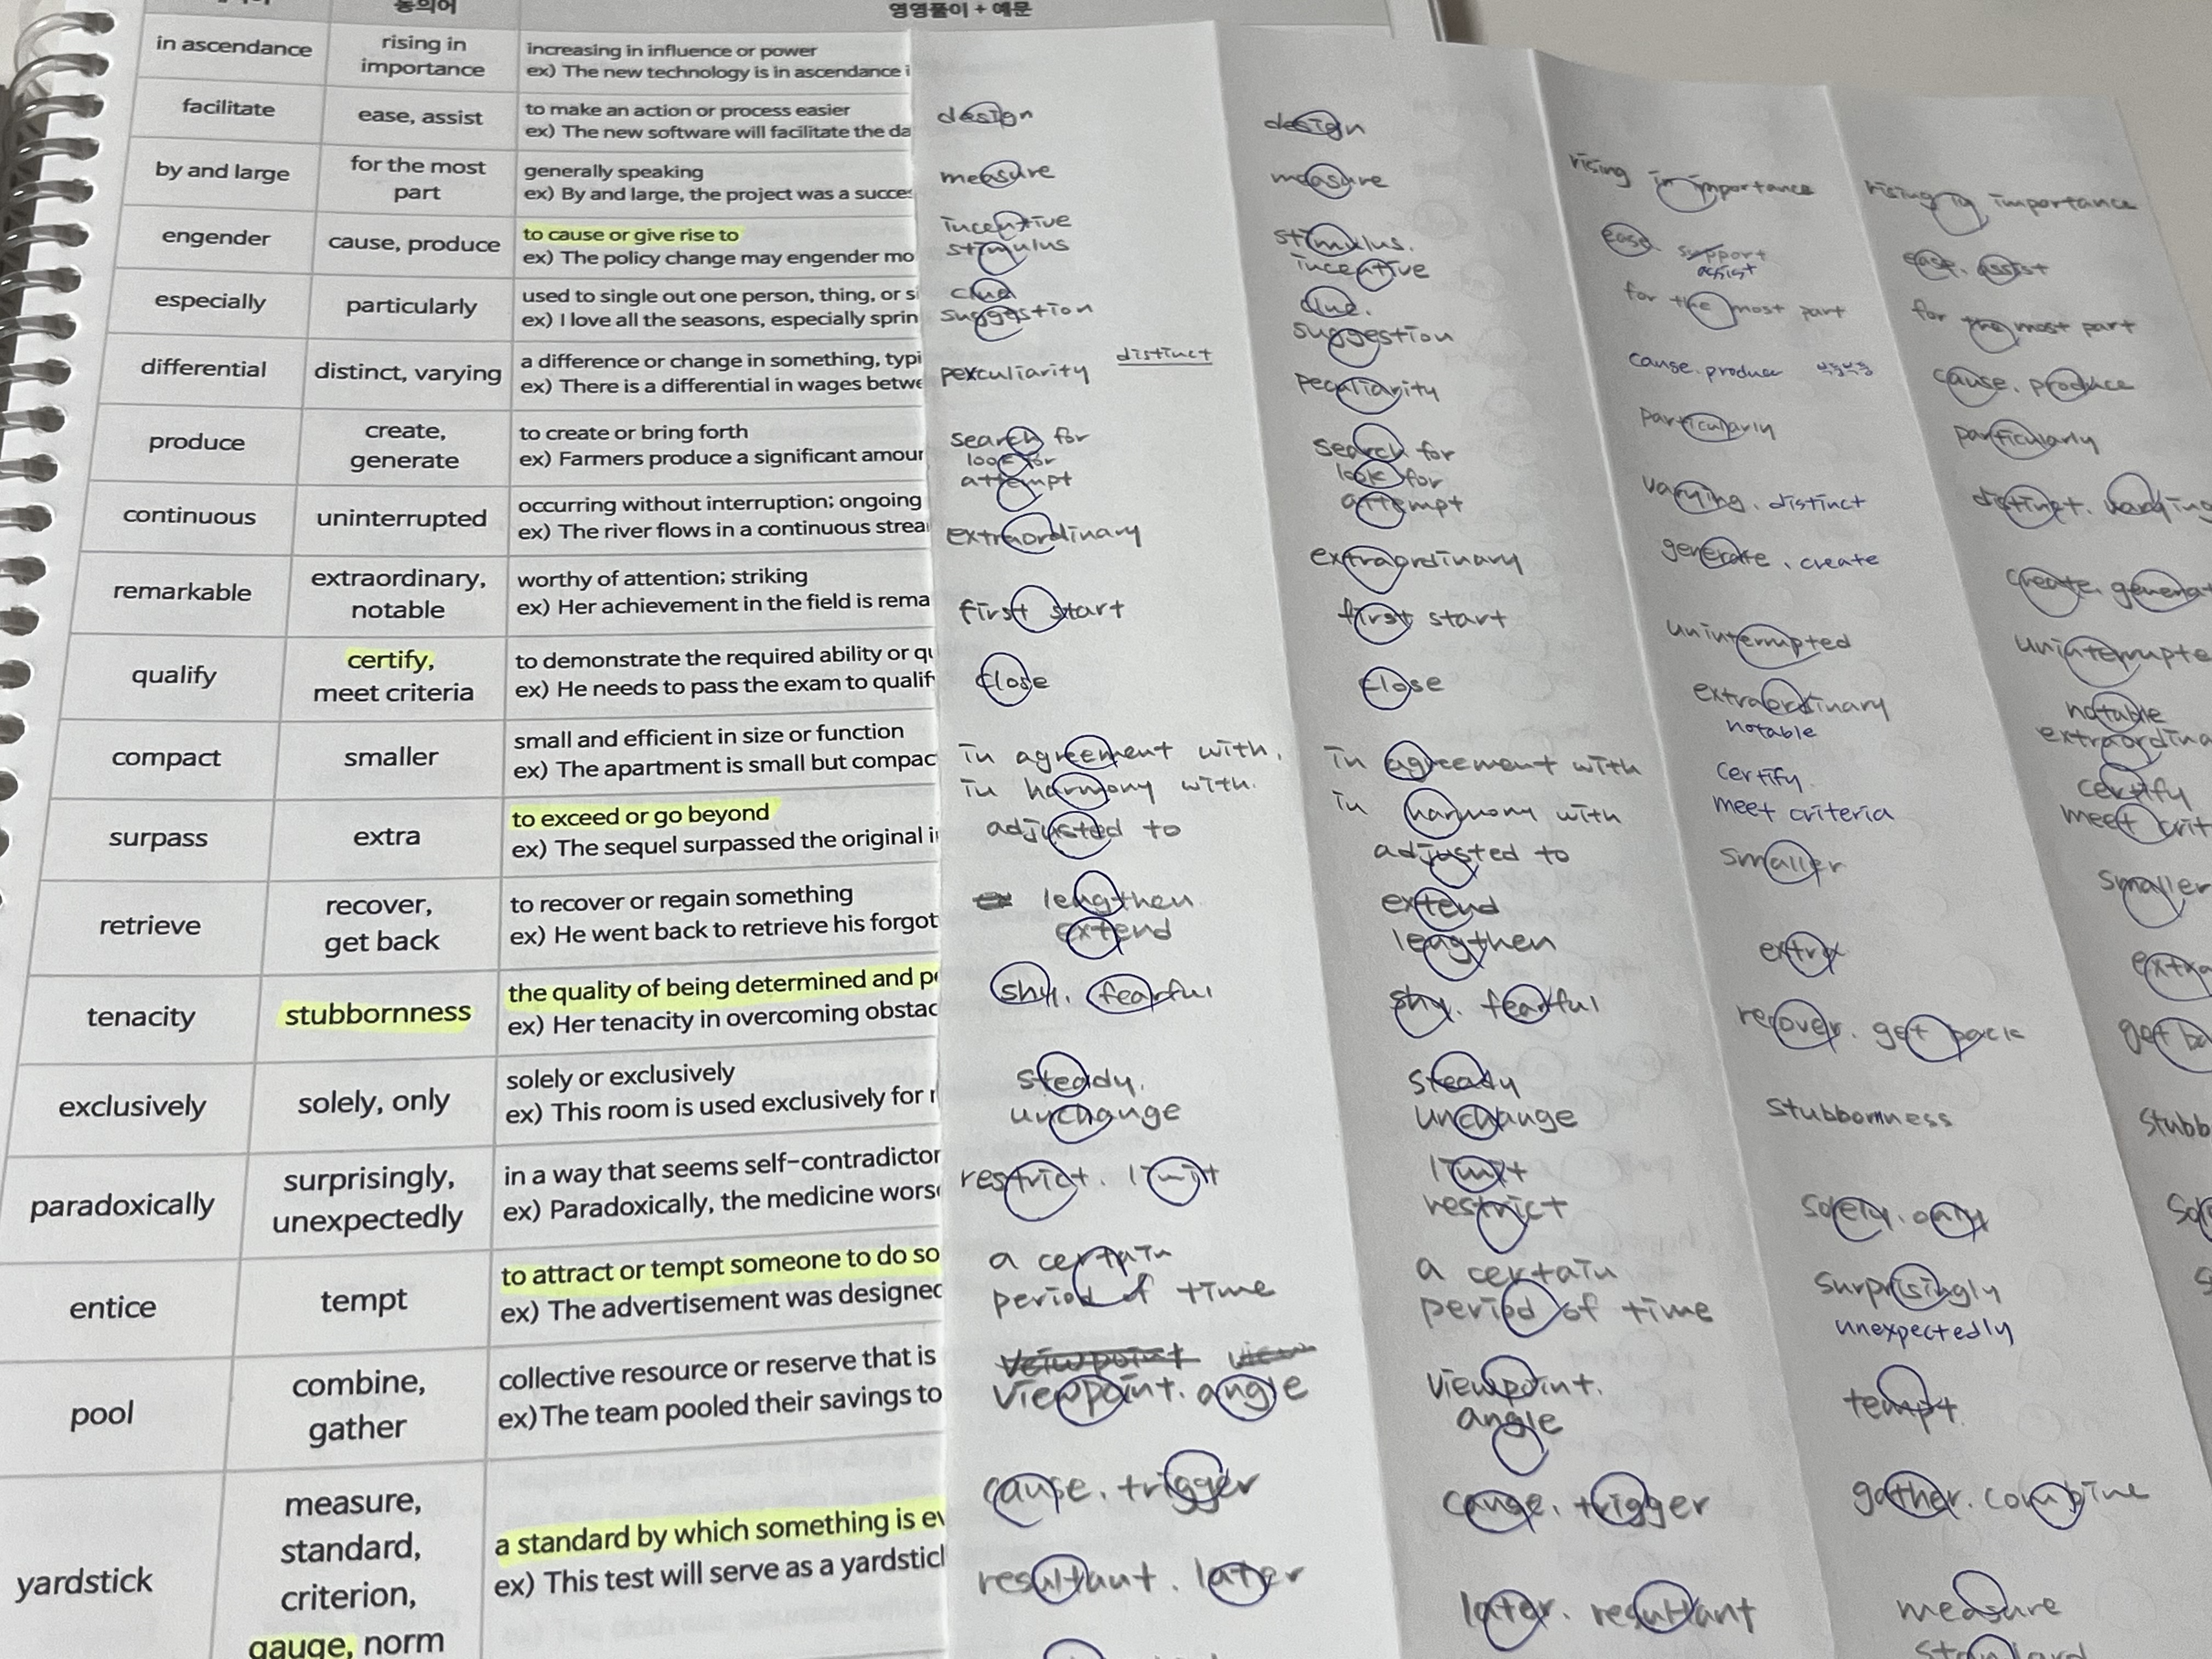 동의어
영영풀이 + 예문
in ascendance
rising in
importance
increasing in influence or power
ex) The new technology is in ascendance i
facilitate
ease, assist
to make an action or process easier
ex) The new software will facilitate the da
by and large
for the most
part
generally speaking
ex) By and large, the project was a succes
engender
cause, produce
to cause or give rise to
ex) The policy change may engender mo
especially
particularly
used to single out one person, thing, or si
ex) I love all the seasons, especially sprin
differential
distinct, varying
a difference or change in something, typi
ex) There is a differential in wages betwe
produce
create,
generate
to create or bring forth
ex) Farmers produce a significant amour
continuous
uninterrupted
occurring without interruption; ongoing
ex) The river flows in a continuous strea
remarkable
extraordinary,
notable
worthy of attention; striking
ex) Her achievement in the field is rema
qualify
certify,
meet criteria
to demonstrate the required ability or qu
ex) He needs to pass the exam to qualify
compact
smaller
small and efficient in size or function
ex) The apartment is small but compac
surpass
extra
to exceed or go beyond
ex) The sequel surpassed the original i
retrieve
recover,
get back
to recover or regain something
ex) He went back to retrieve his forgot
tenacity
stubbornness
the quality of being determined and pe
ex) Her tenacity in overcoming obstac
exclusively
solely, only
solely or exclusively
ex) This room is used exclusively for r
paradoxically
surprisingly,
unexpectedly
in a way that seems self-contradictor
ex) Paradoxically, the medicine wors
entice
tempt
to attract or tempt someone to do so
ex) The advertisement was designed
pool
combine,
gather
collective resource or reserve that is
ex)The team pooled their savings to
yardstick
measure,
standard,
criterion,
gauge, norm
a standard by which something is ev
ex) This test will serve as a yardstick
design
measure
incentive
stimulus
clue
suggestion
distinct
peculiarity
search for
look for
attempt
extraordinary
first start
close
in agreement with.
in harmony with.
adjusted to
lengthen
extend
shy. fearful
steady.
unchange
restrict. limit
a certain
period of time
Veiwpoint view
viewpoint. angle
cause. trigger
resultant. later
design
measure
stimulus.
incentive
clue.
suggestion
peculiarity
search for
look for
attempt
extraordinary
first start
close
in agreement with
in harmony with
adjusted to
extend
lengthen
shy. fearful
steady
unchange
limit
restrict
a certain
period of time
viewpoint.
angle
cause. trigger
later. resultant
rising in importance
ease. support
assist
for the most part
cause. produce
particularly
varying. distinct
generate, create
uninterrupted
extraordinary
notable
certify.
meet criteria
smaller
extra
recover. get back
stubbornness
solely. only
surprisingly
unexpectedly
tempt.
gather. combine
measure
standard
rising in importance
ease. assist
for the most part
cause. produce
particularly
distinct. varying
create. generat
uninterrupte
notable
extraordina
certify
meet crit
smaller
extra
get ba
stubb